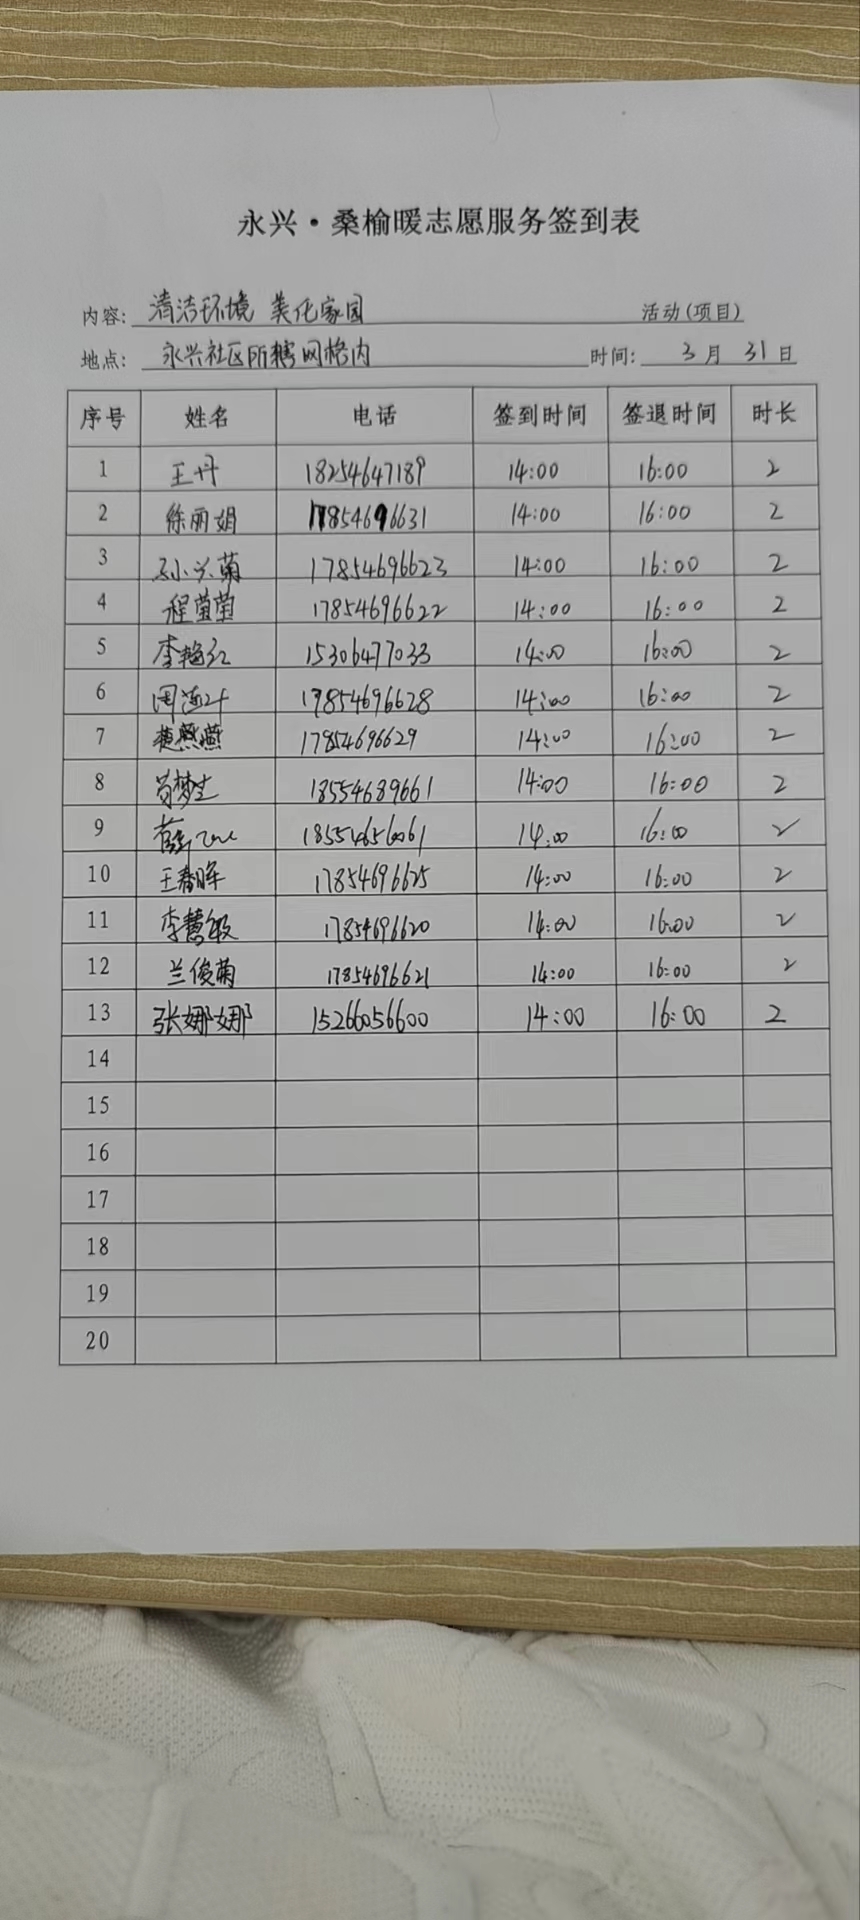 永兴·桑榆暖志愿服务签到表
内容: 清洁环境 美化家园 活动(项目)
地点: 永兴社区所辖网格内 时间: 3月31日
序号 姓名 电话 签到时间 签退时间 时长
1 王丹 18254647189 14:00 16:00 2
2 徐丽娟 17854696631 14:00 16:00 2
3 孙兴菊 17854696623 14:00 16:00 2
4 程莹莹 17854696622 14:00 16:00 2
5 李艳红 15306477033 14:00 16:00 2
6 周莲叶 17854696628 14:00 16:00 2
7 燕燕 17854696629 14:00 16:00 2
8 苟梦生 18554689661 14:00 16:00 2
9 14:00 16:00 2
10 王春晖 17854696625 14:00 16:00 2
11 李慧敏 17854696620 14:00 16:00 2
12 兰俊菊 17854696621 14:00 16:00 2
13 张娜娜 15266056600 14:00 16:00 2
14
15
16
17
18
19
20